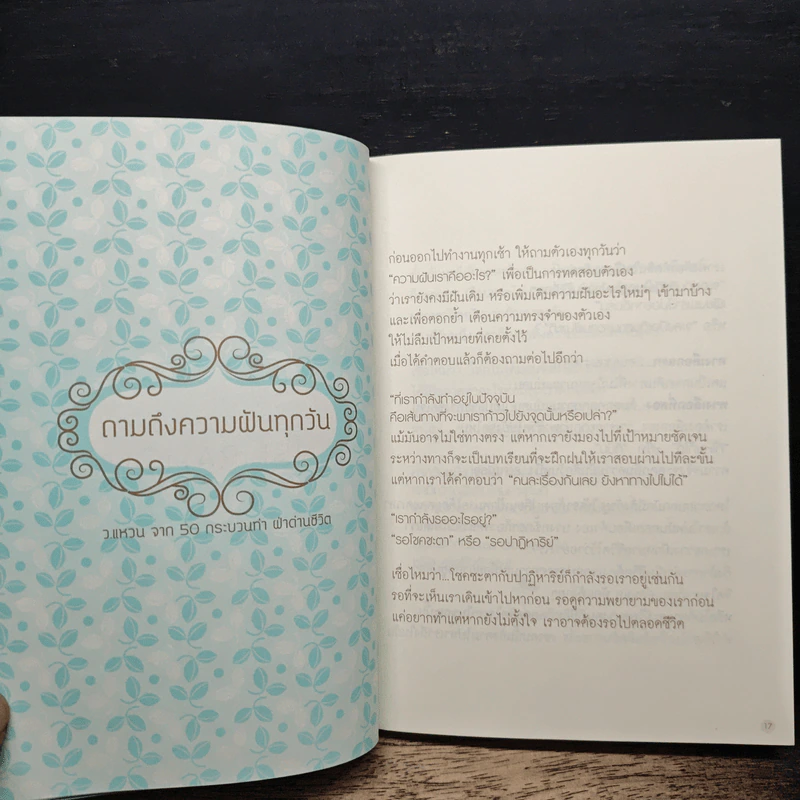 ถามถึงความฝันทุกวัน
ว.แหวน จาก 50 กระบวนท่า ฝ่าด่านชีวิต
ก่อนออกไปทำงานทุกเช้า ให้ถามตัวเองทุกวันว่า
“ความฝันเราคืออะไร?” เพื่อเป็นการทดสอบตัวเอง
ว่าเรายังคงมีฝันเดิม หรือเพิ่มเติมความฝันอะไรใหม่ๆ เข้ามาบ้าง
และเพื่อตอกย้ำ เตือนความทรงจำของตัวเอง
ให้ไม่ลืมเป้าหมายที่เคยตั้งไว้
เมื่อได้คำตอบแล้วก็ต้องถามต่อไปอีกว่า
“ที่เรากำลังทำอยู่ในปัจจุบัน
คือเส้นทางที่จะพาเราก้าวไปยังจุดนั้นหรือเปล่า?”
แม้มันอาจไม่ใช่ทางตรง แต่หากเรายังมองไปที่เป้าหมายชัดเจน
ระหว่างทางก็จะเป็นบทเรียนที่จะฝึกฝนให้เราสอบผ่านไปทีละขั้น
แต่หากเราได้คำตอบว่า “คนละเรื่องกันเลย ยังหาทางไปไม่ได้”
“เรากำลังรออะไรอยู่?”
“รอโชคชะตา” หรือ “รอปาฏิหาริย์”
เชื่อไหมว่า...โชคชะตากับปาฏิหาริย์ก็กำลังรอเราอยู่เช่นกัน
รอที่จะเห็นเราเดินเข้าไปหาก่อน รอดูความพยายามของเราก่อน
แค่อยากทำแต่หากยังไม่ตั้งใจ เราอาจต้องรอไปตลอดชีวิต
17